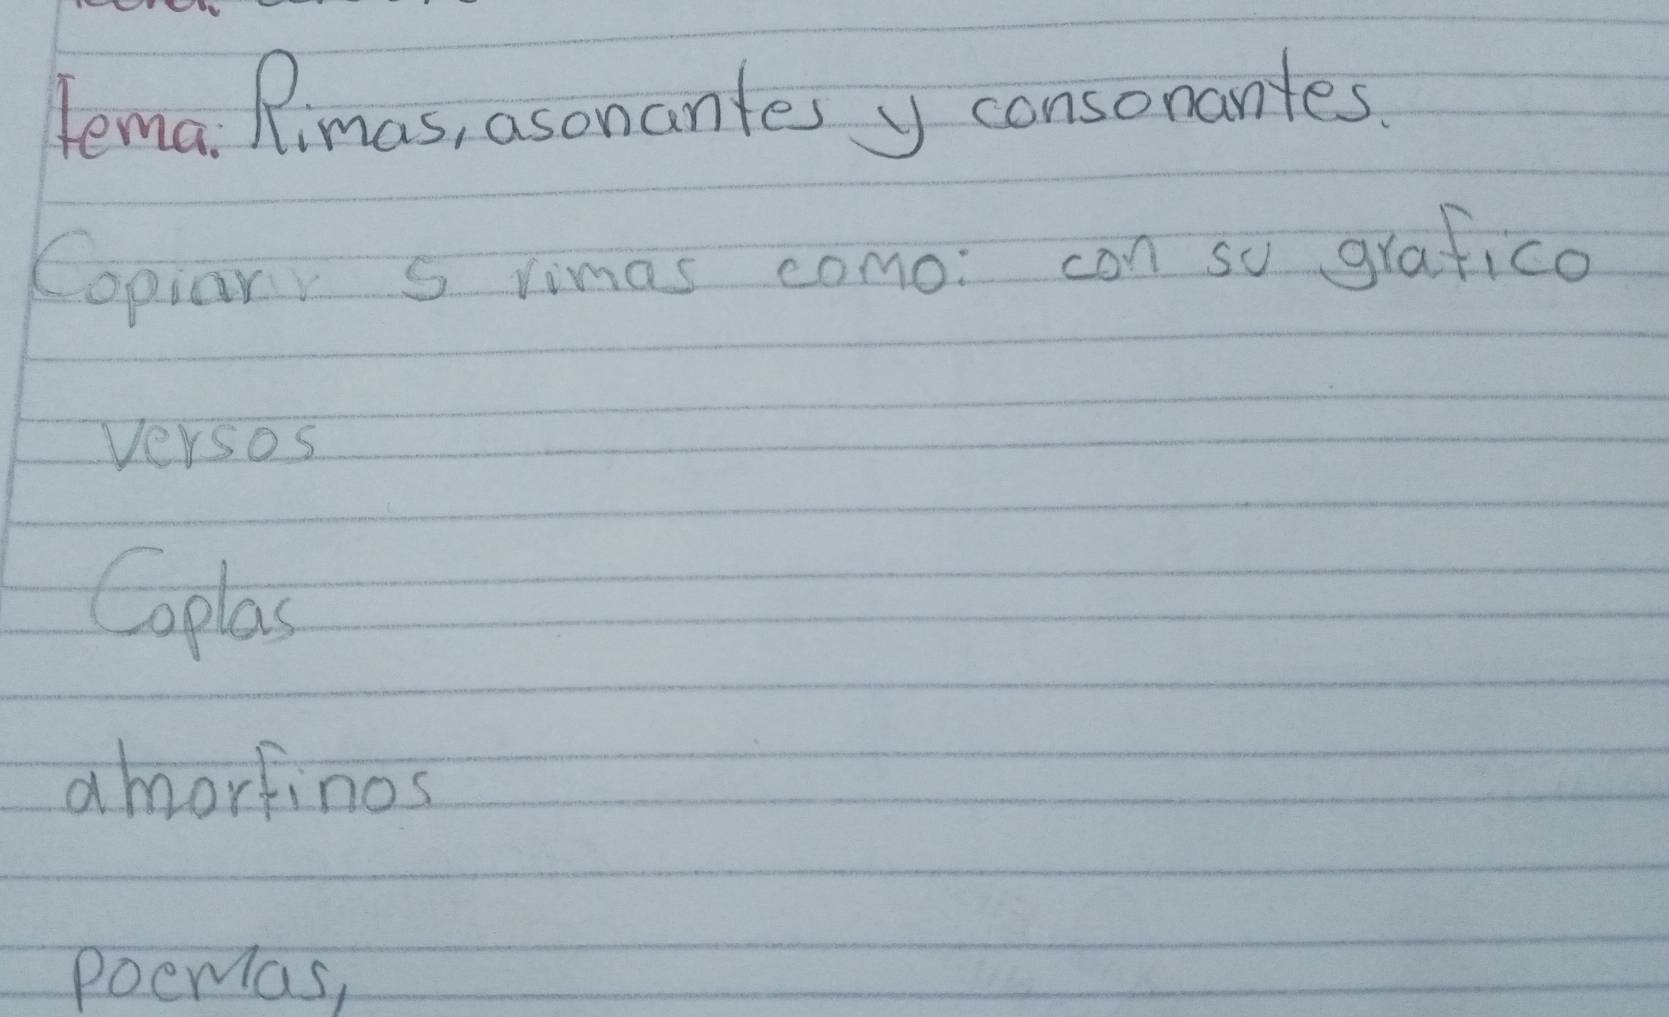 Tema: Rimas, asonantes y consonantes.
Copiar 5 rimas como: con su grafico
versos
Coplas
amorfinos
poemas,